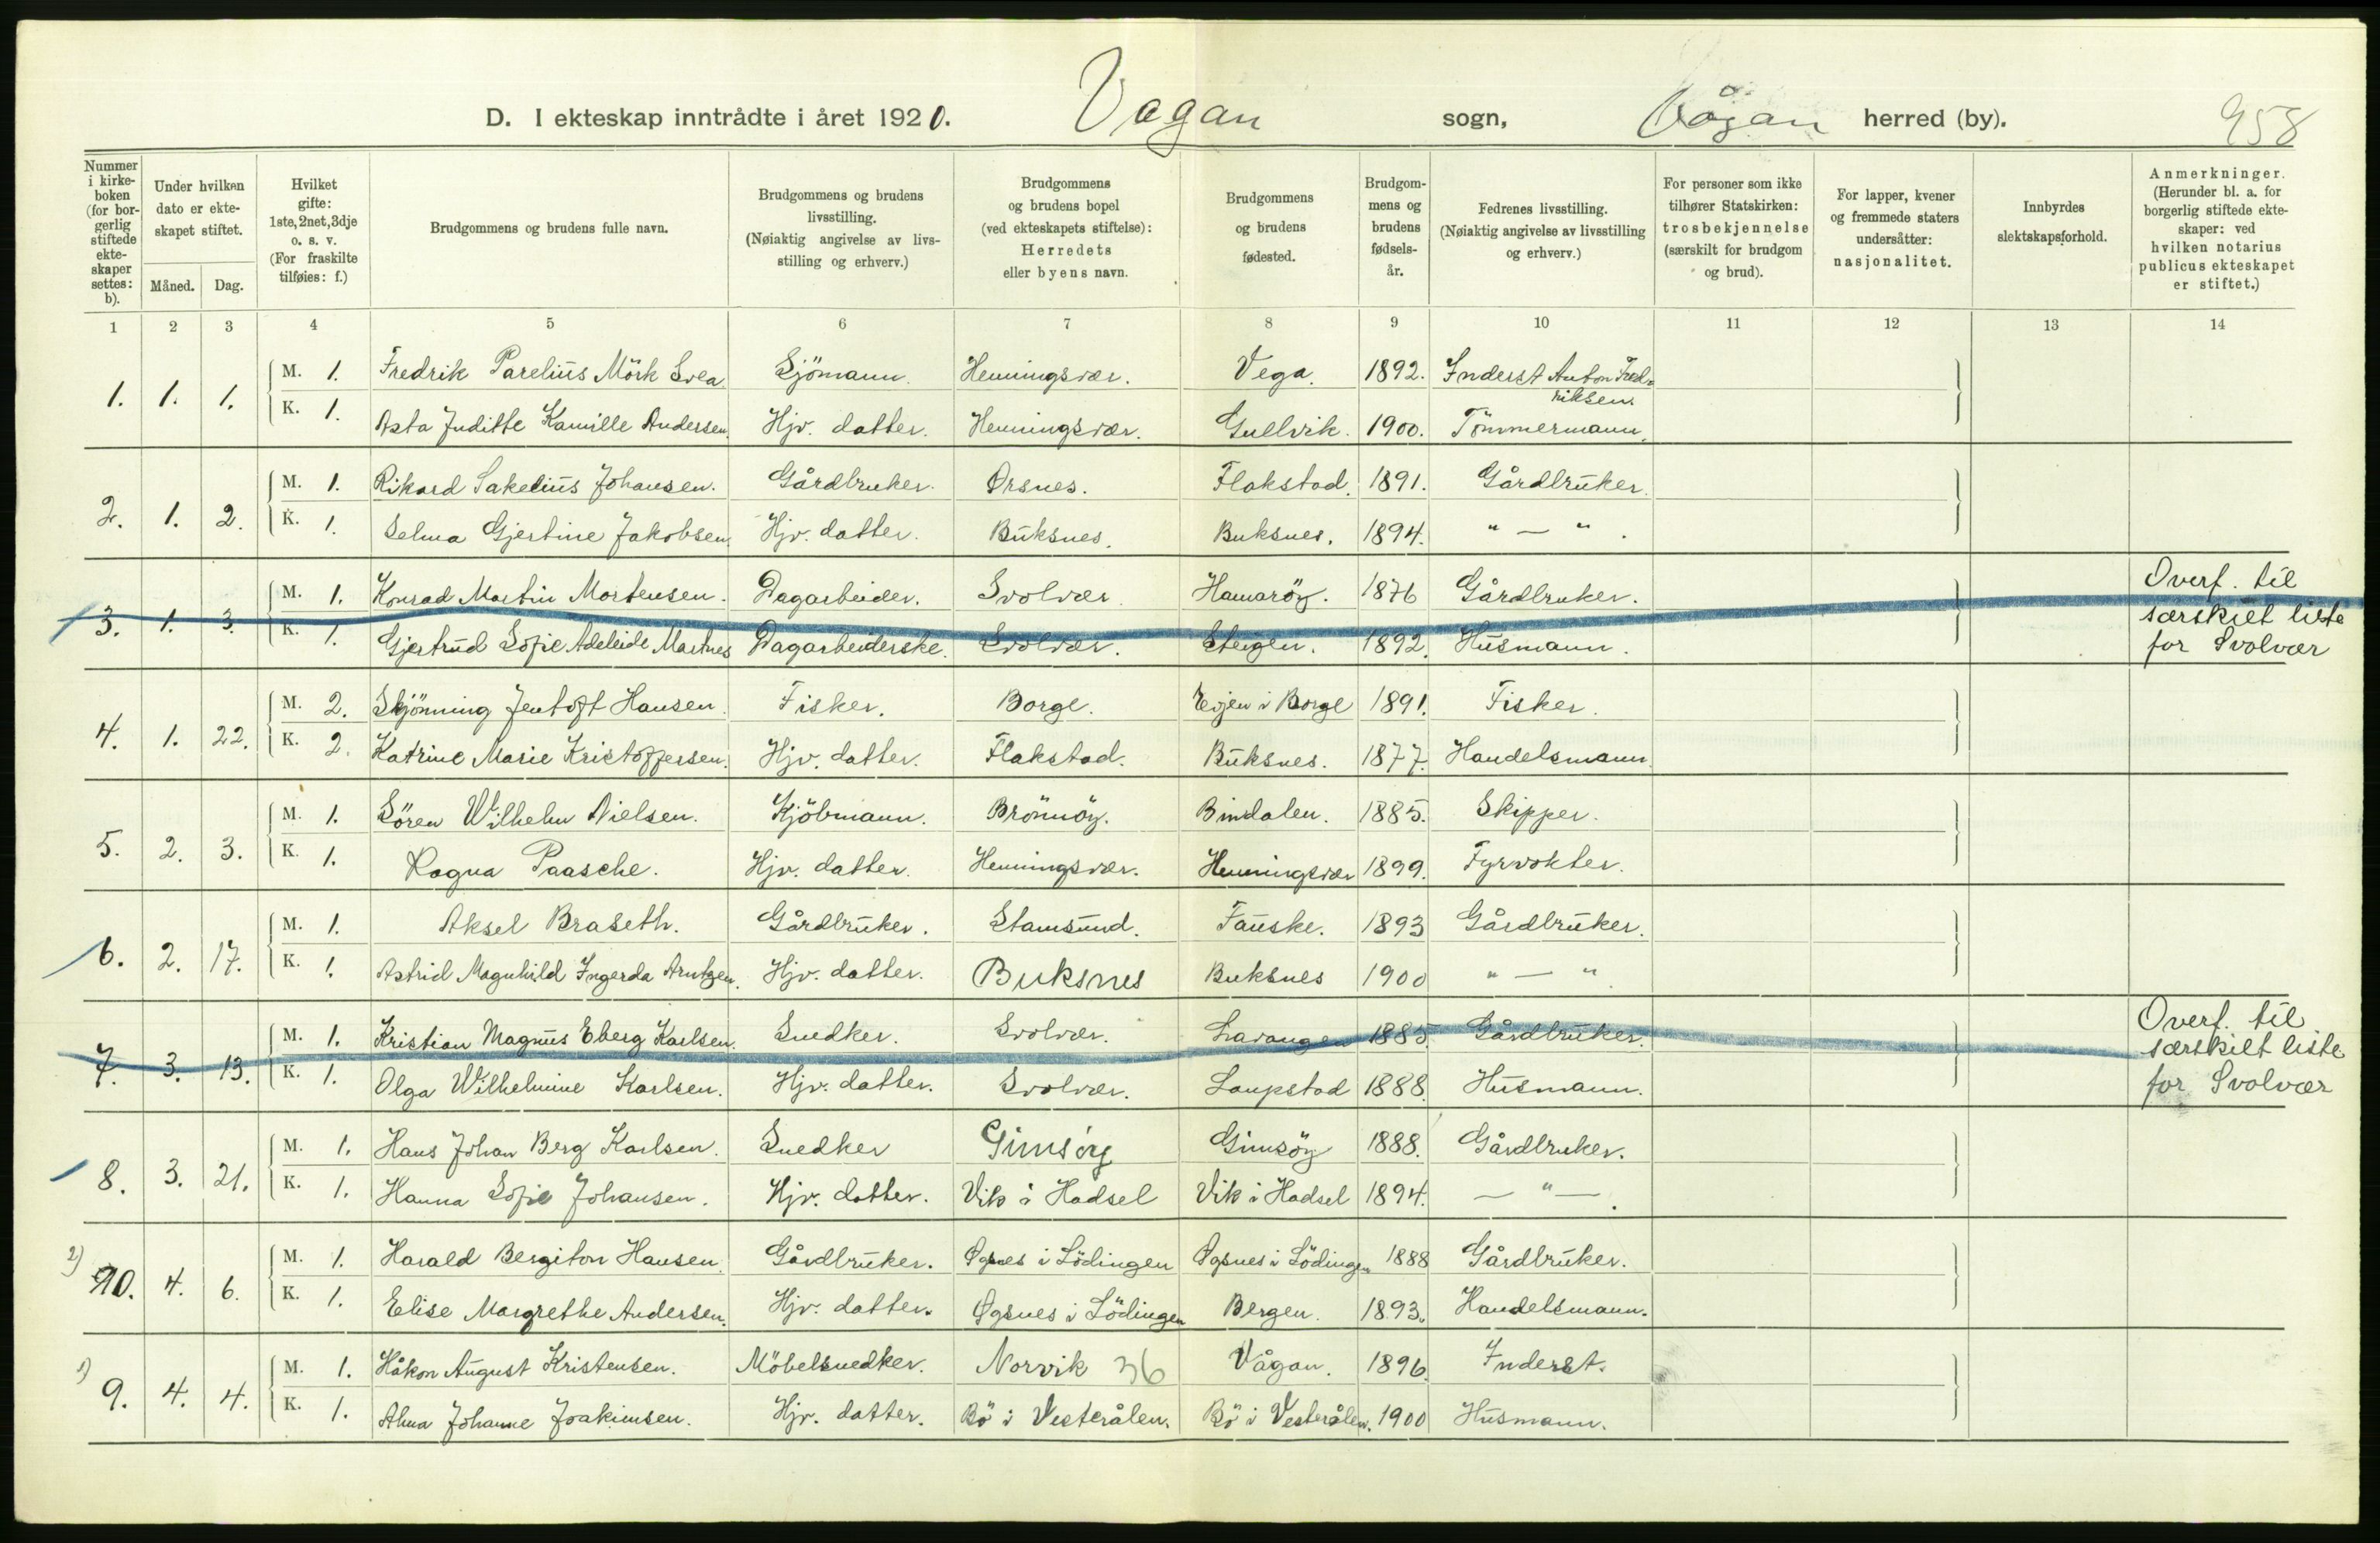 D. I ekteskap inntrådte i året 1920. Vagan sogn, Vågan herred (by). 958
Nummer i kirkeboken (for borgerlig stiftede ekteskaper settes: b). | Under hvilken dato er ekteskapet stiftet. Måned. Dag. | Hvilket gifte: 1ste, 2net, 3dje o. s. v. (For fraskilte tilføies: f.) | Brudgommens og brudens fulle navn. | Brudgommens og brudens livsstilling. (Nøiaktig angivelse av livsstilling og erhverv.) | Brudgommens og brudens bopel (ved ekteskapets stiftelse): Herredets eller byens navn. | Brudgommens og brudens fødested. | Brudgommens og brudens fødselsår. | Fedrenes livsstilling. (Nøiaktig angivelse av livsstilling og erhverv.) | For personer som ikke tilhører Statskirken: trosbekjennelse (særskilt for brudgom og brud). | For lapper, kvener og fremmede staters undersåtter: nasjonalitet. | Innbyrdes slektskapsforhold. | Anmerkninger. (Herunder bl. a. for borgerlig stiftede ekteskaper: ved hvilken notarius publicus ekteskapet er stiftet.)
1 2 3 4 5 6 7 8 9 10 11 12 13 14
1. 1. 1. M. 1. Fredrik Parelius Mörk Svea Sjömann. Henningsvær. Vega. 1892. Inderst Anton Fredriksen.
K. 1. Asta Juditte Kamille Andersen. Hjv. datter. Henningsvær. Gullvik. 1900. Tömmermann.
2. 1. 2. M. 1. Rikard Sakelius Johansen. Gårdbruker. Ørsnes. Flakstad. 1891. Gårdbruker.
K. 1. Selma Gjertine Jakobsen. Hjv. datter. Buksnes. Buksnes. 1894. " — " .
3. 1. 3. M. 1. Konrad Martin Mortensen. Dagarbeider. Svolvær. Hamaröy. 1876 Gårdbruker. Overf. til
K. 1. Gjertrud Sofie Adeleide Martnes Dagarbeiderske. Svolvær. Steigen. 1892. Husmann. særskilt liste
for Svolvær
4. 1. 22. M. 2. Skjönning Jentoft Hansen. Fisker. Borge. Eijen i Borge 1891. Fisker.
K. 2. Katrine Marie Kristoffersen. Hjv. datter. Flakstad. Buksnes. 1877. Handelsmann.
5. 2. 3. M. 1. Sören Wilhelm Nielsen. Kjöbmann. Brönnöy. Bindalen. 1885. Skipper.
K. 1. Ragna Paasche. Hjv. datter. Henningsvær. Henningsvær 1899. Fyrvokter.
6. 2. 17. M. 1. Aksel Braseth. Gårdbruker. Stamsund. Fauske. 1893 Gårdbruker.
K. 1. Astrid Magnhild Ingerda Arntzen. Hjv. datter. Buksnes Buksnes 1900 " — " .
7. 3. 13. M. 1. Kristian Magnus Eberg Karlsen. Snedker. Svolvær. Lavangen 1885. Gårdbruker. Overf. til
særskilt liste
K. 1. Olga Wilhelmine Karlsen. Hjv. datter. Svolvær. Laupstad 1888. Husmann. for Svolvær
8. 3. 21. M. 1. Hans Johan Berg Karlsen. Snedker Gimsöy Gimsöy 1888. Gårdbruker.
K. 1. Hanna Sofie Johansen. Hjv. datter. Vik i Hadsel Vik i Hadsel 1894. — " — .
2) 10. 4. 6. M. 1. Harald Bergiton Hansen. Gårdbruker. Øgsnes i Lödingen Øgsnes i Lödingen 1888 Gårdbruker.
K. 1. Elise Margrethe Andersen. Hjv. datter. Øgsnes i Lödingen Bergen. 1893. Handelsmann.
1) 9. 4. 4. M. 1. Håkon August Kristensen. Möbelsnedker. Norvik 36 Vågan. 1896. Inderst.
K. 1. Alma Johanne Joakimsen. Hjv. datter. Bö i Vesterålen. Bö i Vesterålen. 1900 Husmann.